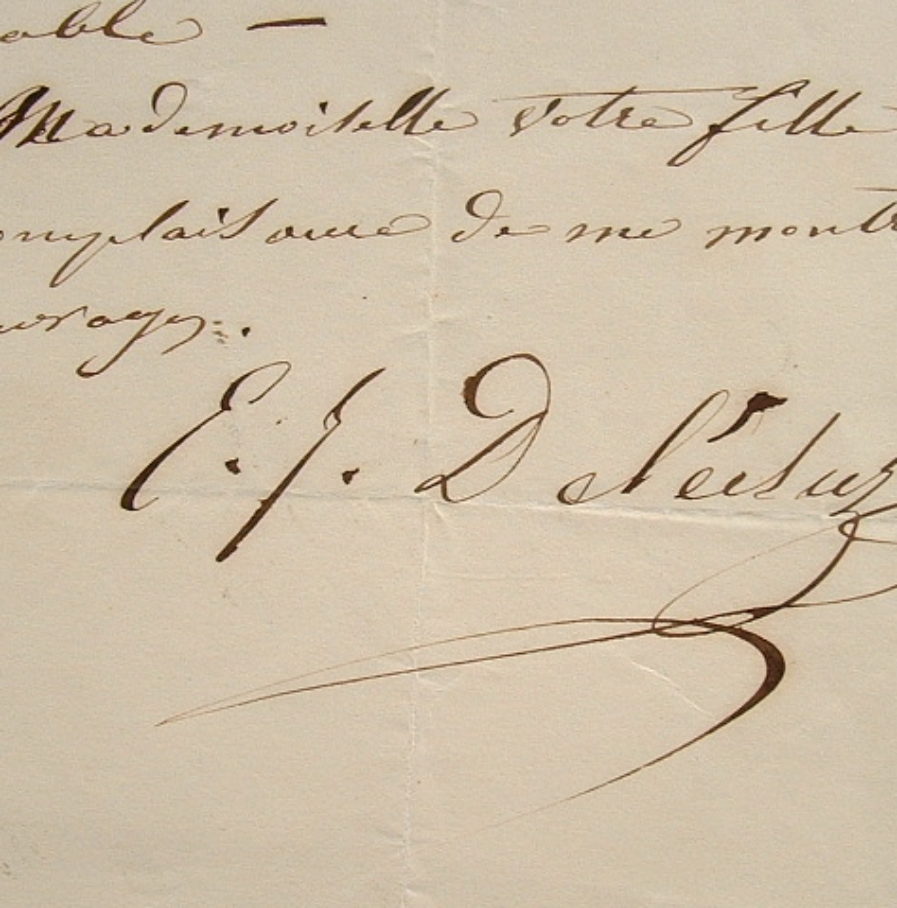 able —
Mademoiselle votre fille
omplaisance de me montr
uvrages.
E. J. Delécluz